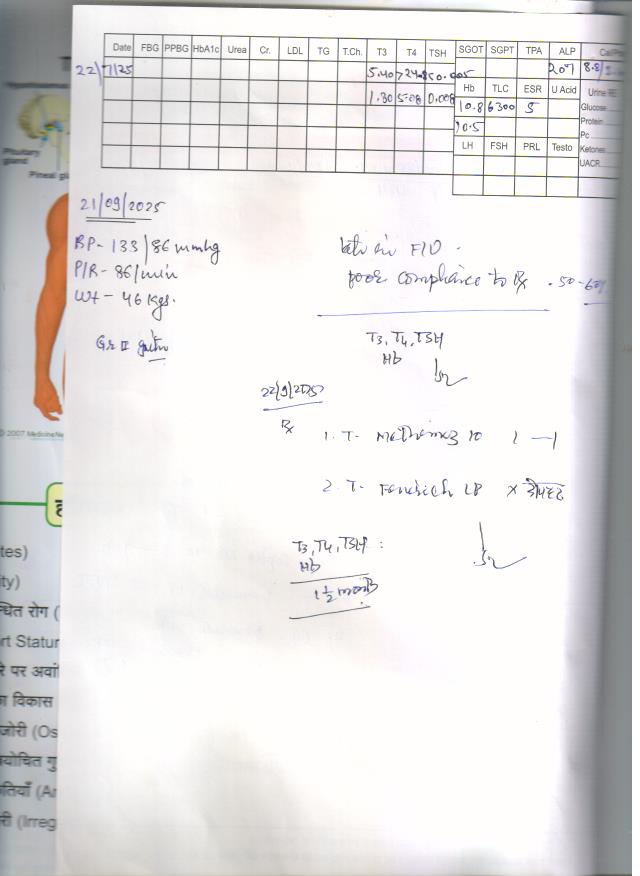 Date FBG PPBG HbA1c Urea Cr. LDL TG T.Ch. T3 T4 TSH SGOT SGPT TPA ALP
22/7/25 5.40 >24.8 <0.005 207 8.8/
Hb TLC ESR U Acid Urine RE
1.30 5.08 0.008 10.8 6300 5 Glucose
10.5 Protein
Pc
LH FSH PRL Testo Ketones
UACR
Pituitary
gland
Pineal gl
21/09/2025
BP- 133/86 mmhg
P/R- 86/min
Wt- 46 Kgs.
F/U
poor compliance to Rx . 50-60%
Gr II
T3, T4, TSH
Hb
22/9/2025
Rx
1. T- 10 1 — 1
2. T-
T3, T4, TSH :
Hb
1 1/2 month
© 2007 MedicineNe
tes)
ity)
न्धित रोग (
rt Statur
रे पर अवां
ा विकास
जोरी (Os
योचित गु
तियाँ (Ar
री (Irreg